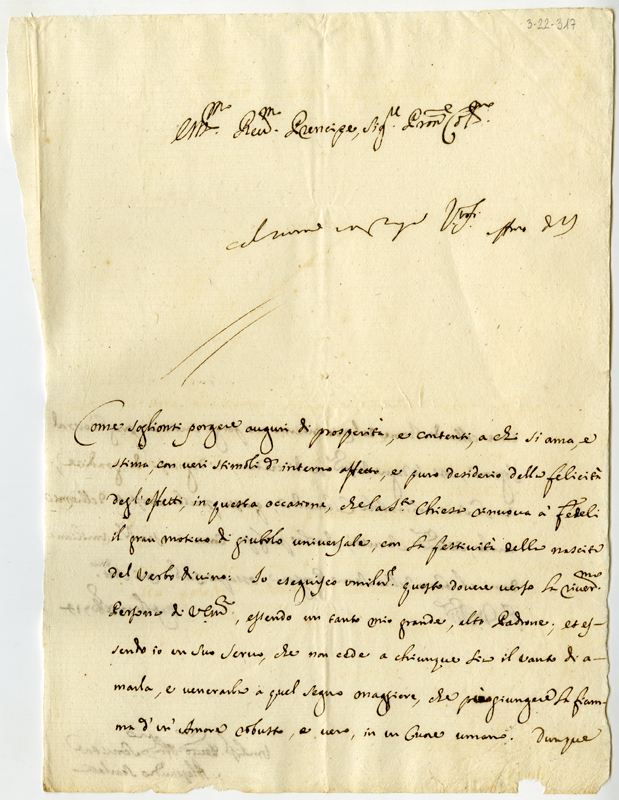 3-22-317
Em.mo Reu.mo Prencipe, Sig.re Pron.e Col.mo
Come soglionsi porgere augurj di prosperità, e contenti, a chi si ama, e
stima, con veri stimoli d' interno affetto, e puro desiderio della felicità
degl' effetti, in questa occasione, che la S.ta Chiesa rinnova a' fedeli
il gran motivo di giubolo universale, con la festività della nascita
del Verbo divino: Io eseguisco umilm.te questo dovere verso la river.ma
Persona di V. Em.za, essendo un tanto mio grande, alto Padrone; et es-
sendo io un suo servo, che non cede a chiunque sia il vanto di a-
marla, e venerarla a quel segno maggiore, che può giungere la fiam-
ma d' un' Amore robusto, e vero, in un Cuore umano. Dunque